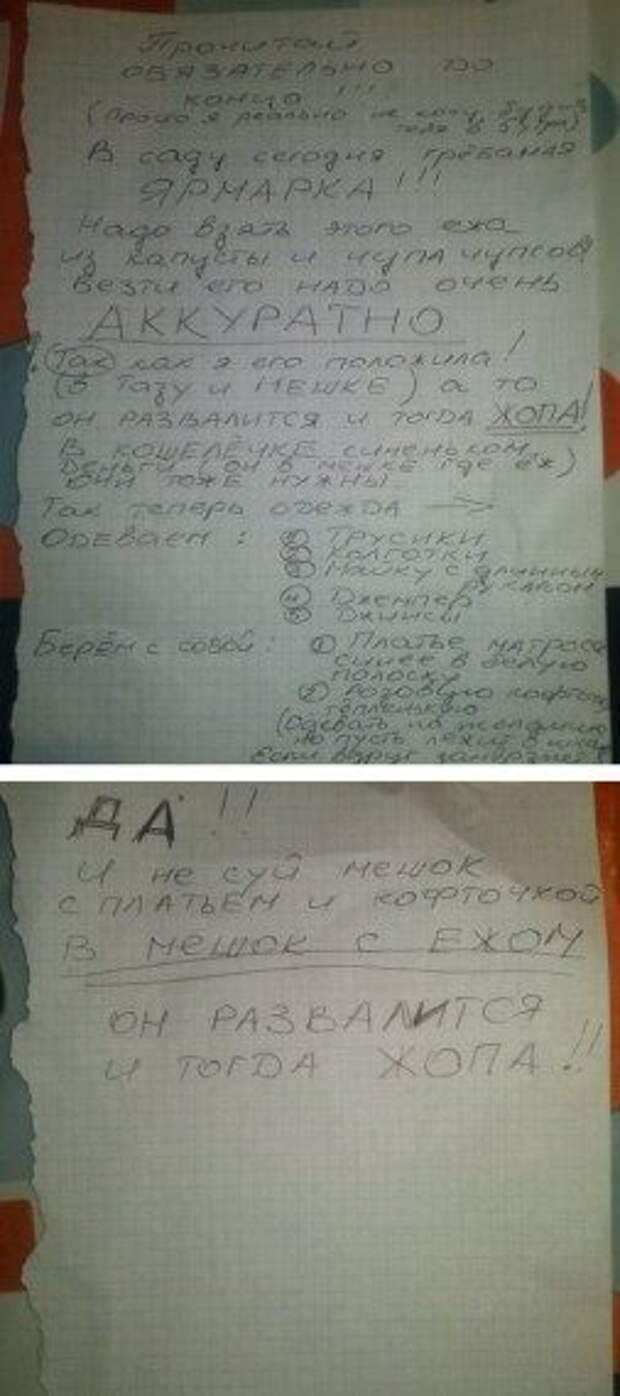 Прочитай
ОБЯЗАТЕЛЬНО ДО
КОНЦА !!!
(просто я реально не хочу будить
тебя в 5 утра)
В саду сегодня грёбаная
ЯРМАРКА!!!
Надо взять этого ежа
из капусты и чупа чупсов!
Везти его надо очень
АККУРАТНО
! Так как я его положила!
(В ТАЗУ и МЕШКЕ) а то
ОН РАЗВАЛИТСЯ и тогда ЖОПА!
В кошелёчке синеньком
Деньги (он в мешке где ёж)
они тоже нужны
Так теперь одежда →
ОДЕВАЕМ: ① ТРУСИКИ
② КОЛГОТКИ
③ Майку с длинным
рукавом
④ Джемпер
⑤ Джинсы
Берём с собой: ① Платье матроса
синее в белую
полоску
② Розовую кофточку
тепленькую
(Одевать не
но пусть лежит в
Если вдруг замерзнет
ДА!!
И не суй мешок
с ПЛАТЬЕМ и КОФТОЧКОЙ
В МЕШОК С ЕЖОМ
ОН РАЗВАЛИТСЯ
И ТОГДА ЖОПА!!